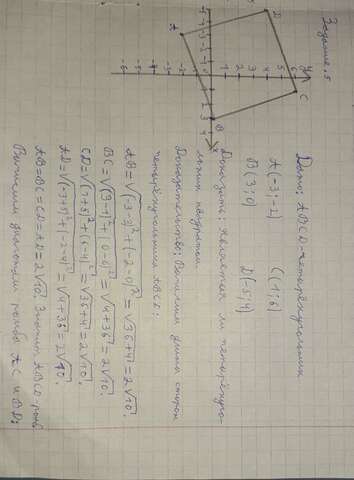 Задание 5
Дано: ABCD-четырёхугольник
A(-3;-2) C(1;6)
B(3;0) D(-5;4)
Доказать: является ли четырёхуго-
льник квадратом
Доказательство: Вычислим длины сторон
четырёхугольника ABCD:
AB=√(-3-3)²+(-2-0)²=√36+4=2√10.
BC=√(3-1)²+(0-6)²=√4+36=2√10.
CD=√(1+5)²+(6-4)²=√36+4=2√10.
AD=√(-3+5)²+(-2-4)²=√4+36=2√10.
AB=BC=CD=AD=2√10. Значит ABCD-ромб
Вычислим диагонали ромба AC и BD: